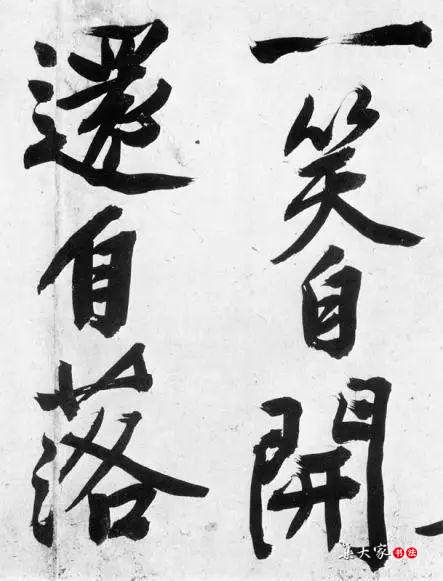 一笑自開
還自落
集大家书法